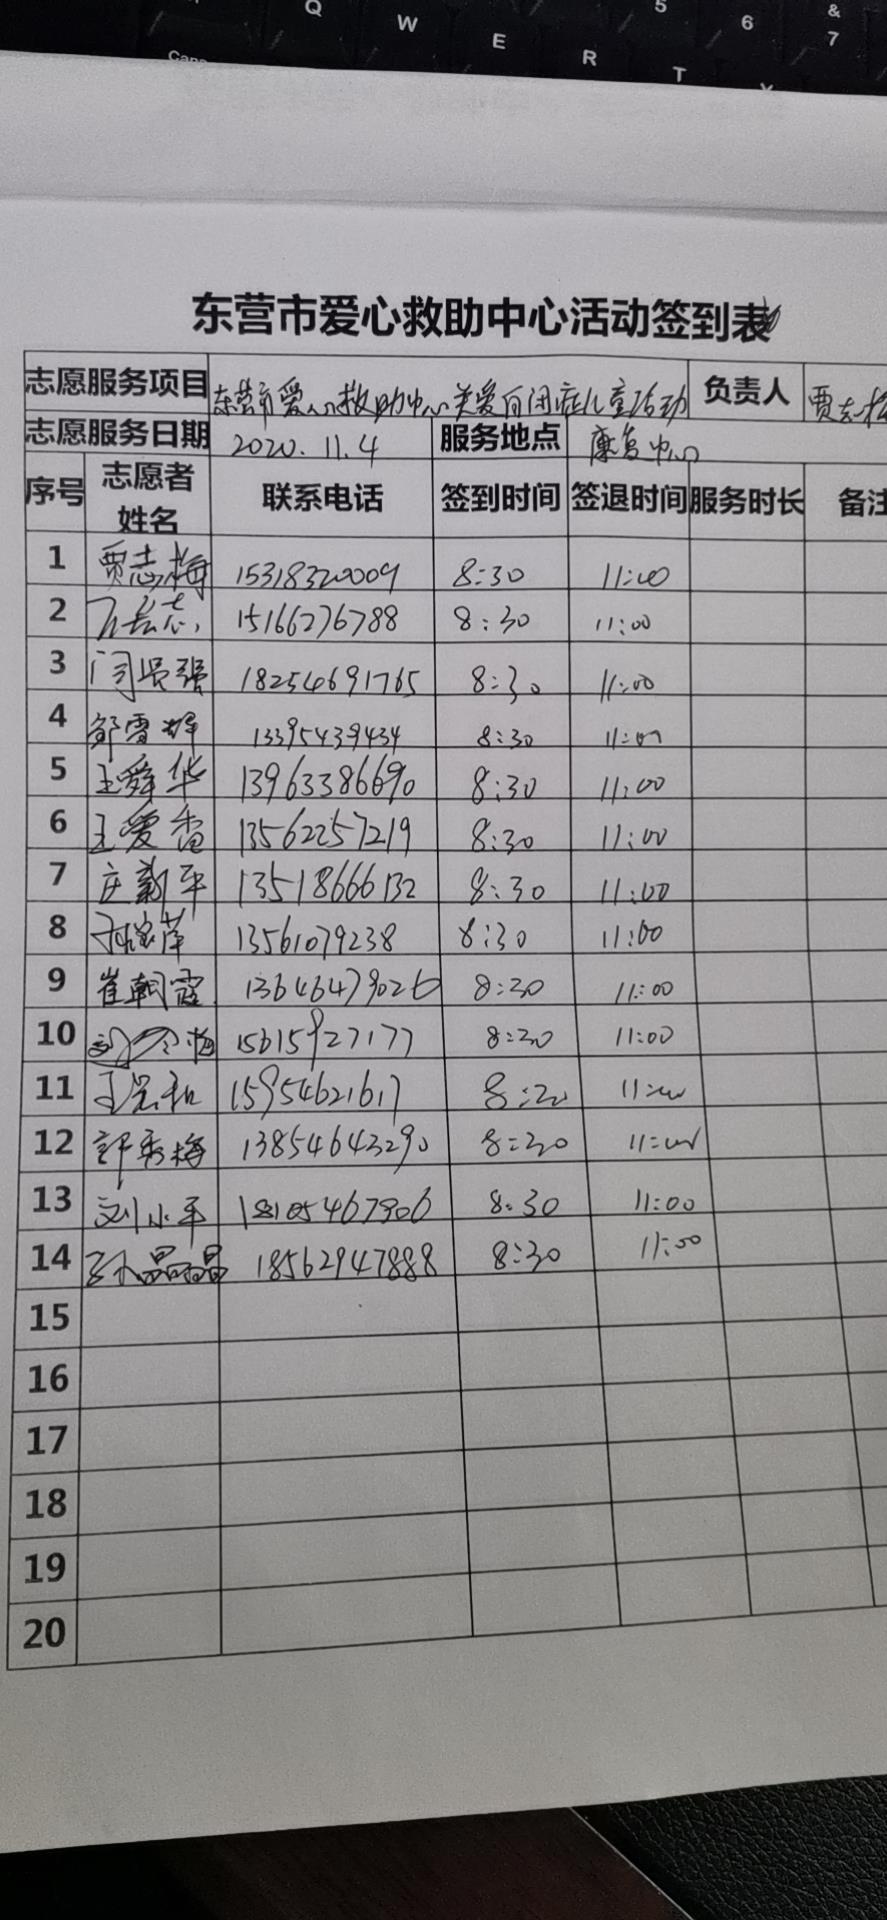 Q W E R T 5 6 & 7
Caps
东营市爱心救助中心活动签到表
志愿服务项目 东营市爱心救助中心关爱自闭症儿童活动 负责人 贾志梅
志愿服务日期 2020.11.4 服务地点 康复中心
序号 志愿者姓名 联系电话 签到时间 签退时间 服务时长 备注
1 贾志梅 15318320009 8:30 11:00
2 15166276788 8:30 11:00
3 闫学强 18254691765 8:30 11:00
4 邹雪梅 13395439434 8:30 11:00
5 王舜华 13963386690 8:30 11:00
6 王爱香 13562257219 8:30 11:00
7 庄新平 13518666132 8:30 11:00
8 13561079238 8:30 11:00
9 崔朝霞 13646479026 8:30 11:00
10 15615927177 8:30 11:00
11 15954621617 8:30 11:00
12 许秀梅 13854643290 8:30 11:00
13 刘小平 18105467906 8:30 11:00
14 孙晶晶 18562947888 8:30 11:00
15
16
17
18
19
20